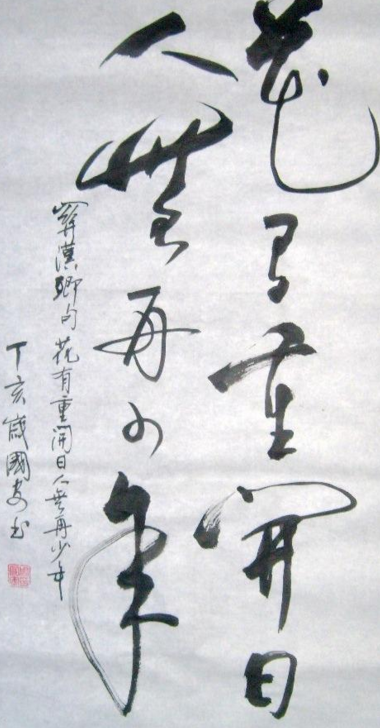 花有重開日
人無再少年
關漢卿句花有重開日人無再少年
丁亥歲國安书